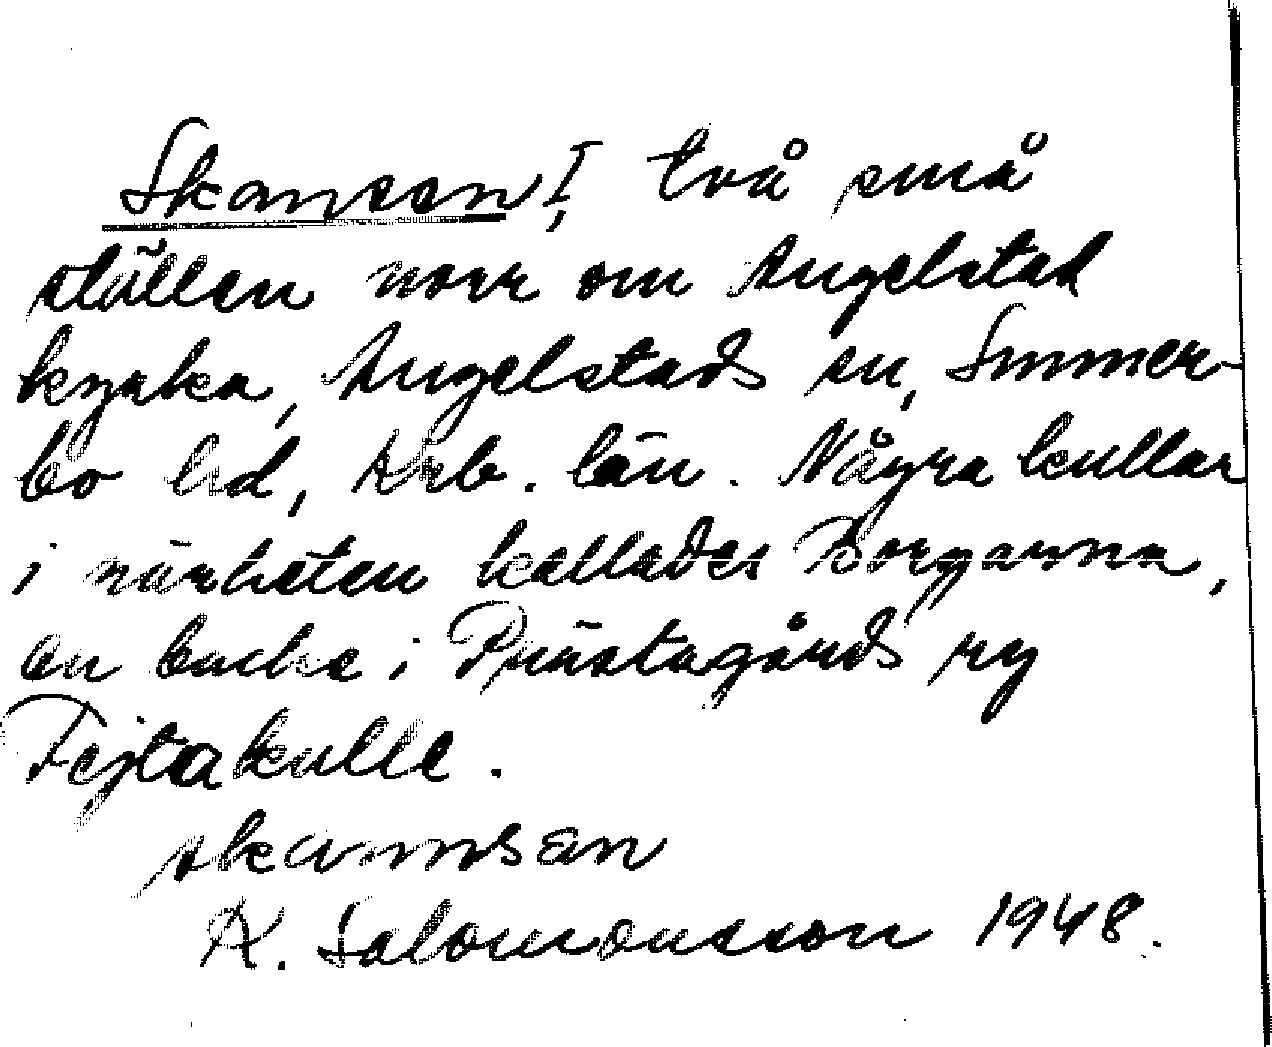 Skansen, två små
ställen norr om Angelstad
kyrka, Angelstads sn, Sunner-
bo hd, Krb. län. Några kullar
i närheten kallades Borgarna,
en backe i Prästagårds ry
Fejtakulle.
skannsan
K. Salomonsson 1948.